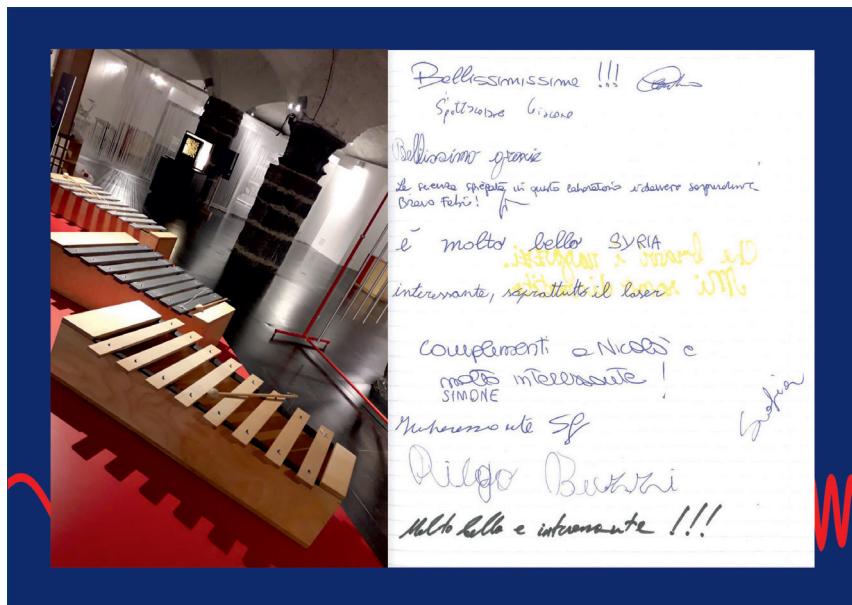 Bellissimissime !!!
Bellissimo grazie
La scienza spiegata in questo laboratorio è davvero sorprendente
Bravo Fabri!
è molto bello SYRIA
Che bravi i ragazzi.
Mi sono divertita
interessante, soprattutto il laser
complementi a Nicolò è
molto interessante !
SIMONE
Interessante
Buzzi
Molto bello e interessante !!!